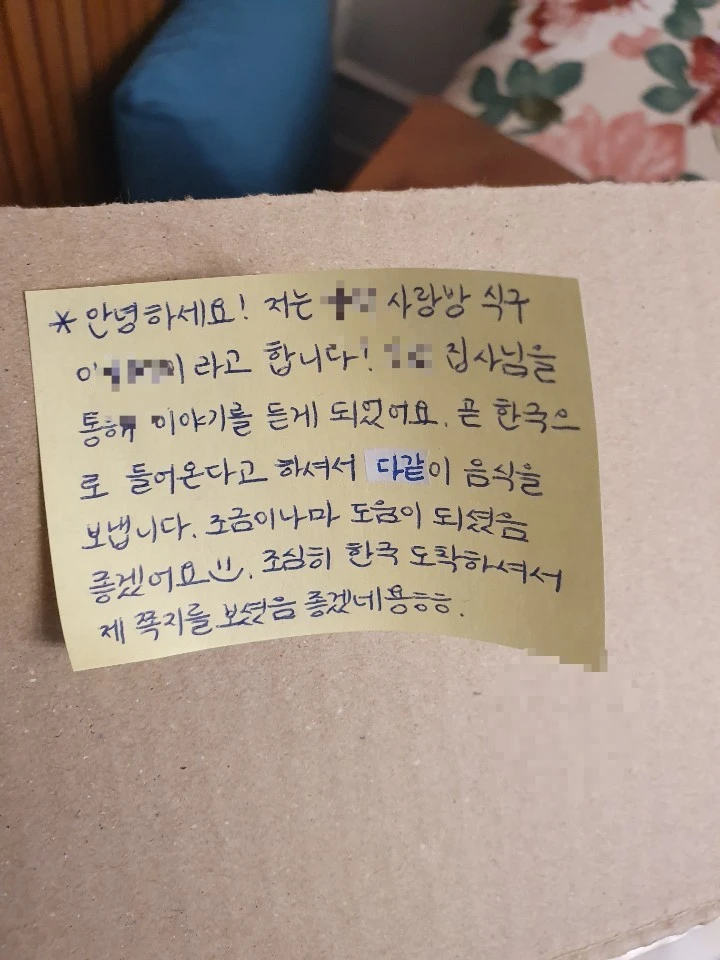 *안녕하세요! 저는 사랑방 식구
라고 합니다! 집사님을
통해 이야기를 듣게 되었어요. 곧 한국으
로 들어온다고 하셔서 다같이 음식을
보냅니다. 조금이나마 도움이 되셨음
좋겠어요. 조심히 한국 도착하셔서
제 쪽지를 보셨음 좋겠네용ㅎㅎ.